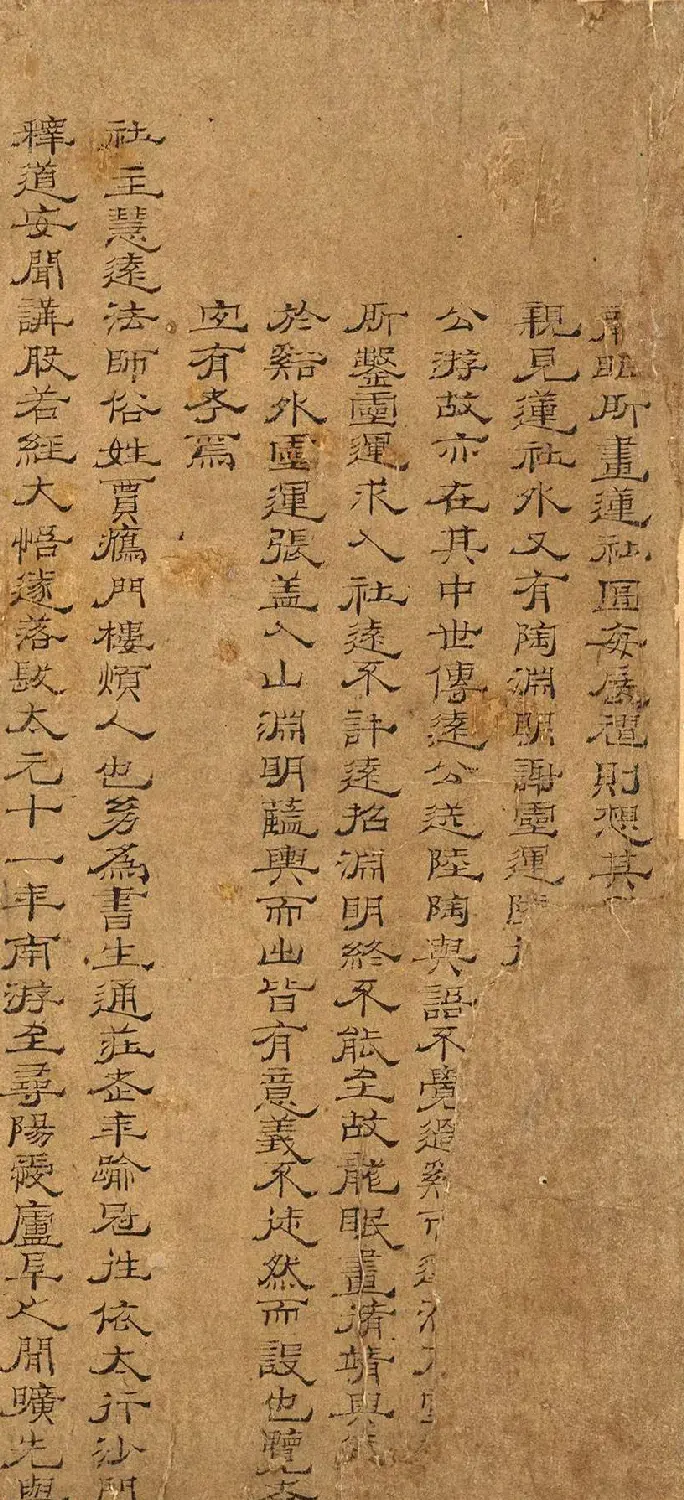 龍眠所畫蓮社圖每展禮則想其
親見蓮社外又有陶淵明謝靈運陸
公游故亦在其中世傳遠公送陸陶與語不覺過谿
所鑒靈運求入社遠不許遠招淵明終不能至故龍眠畫脩靖與
於谿外靈運張盖入山淵明藍輿而出皆有意義不徒然而設也覽者
宜有考焉
社主慧遠法師俗姓賈鴈門樓煩人也幼為書生通莊老年踰冠往依太行沙門
釋道安聞講般若經大悟遂落髮太元十一年南游至尋陽愛廬阜之閒曠先與